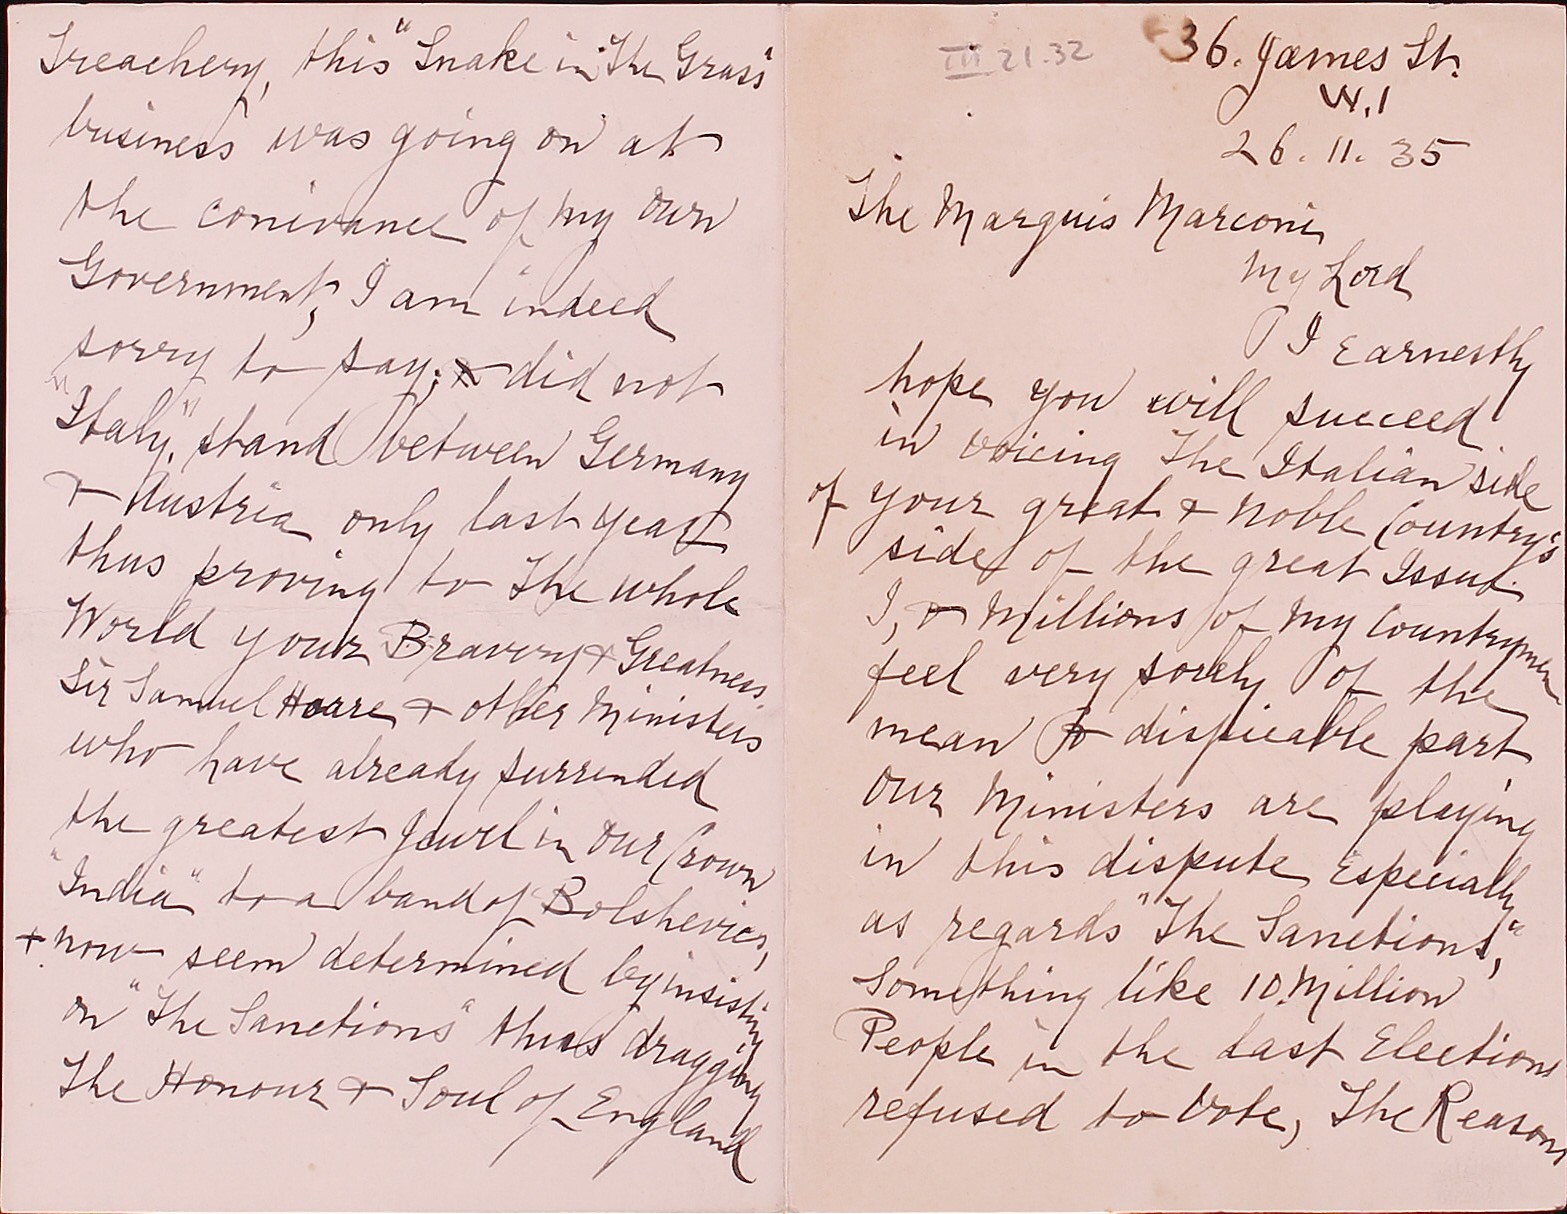 III 21.32
36. James St.
W.1
26. 11. 35
The Marquis Marconi
My Lord
I Earnestly
hope you will succeed
in voicing The Italian side
of your great & Noble Country's
side of the great Issue.
I, & Millions of My Countrymen
feel very sorely of the
mean & dispicable part
Our Ministers are playing
in this dispute Especially
as regards "The Sanctions,"
Something like 10 Million
People in the Last Elections
refused to Vote, The Reasons
Treachery, this "Snake in The Grass"
business was going on at
the conivance of My Own
Government, I am indeed
sorry to say; & did not
"Italy", stand between Germany
& Austria only last year
thus proving to The whole
World your Bravery & Greatness
Sir Samuel Hoare & other Ministers
who have already surrended
the greatest Jewel in Our Crown
"India" to a band of Bolshevics,
& now seem determined by insisting
on "The Sanctions" thus dragging
The Honour & Soul of England